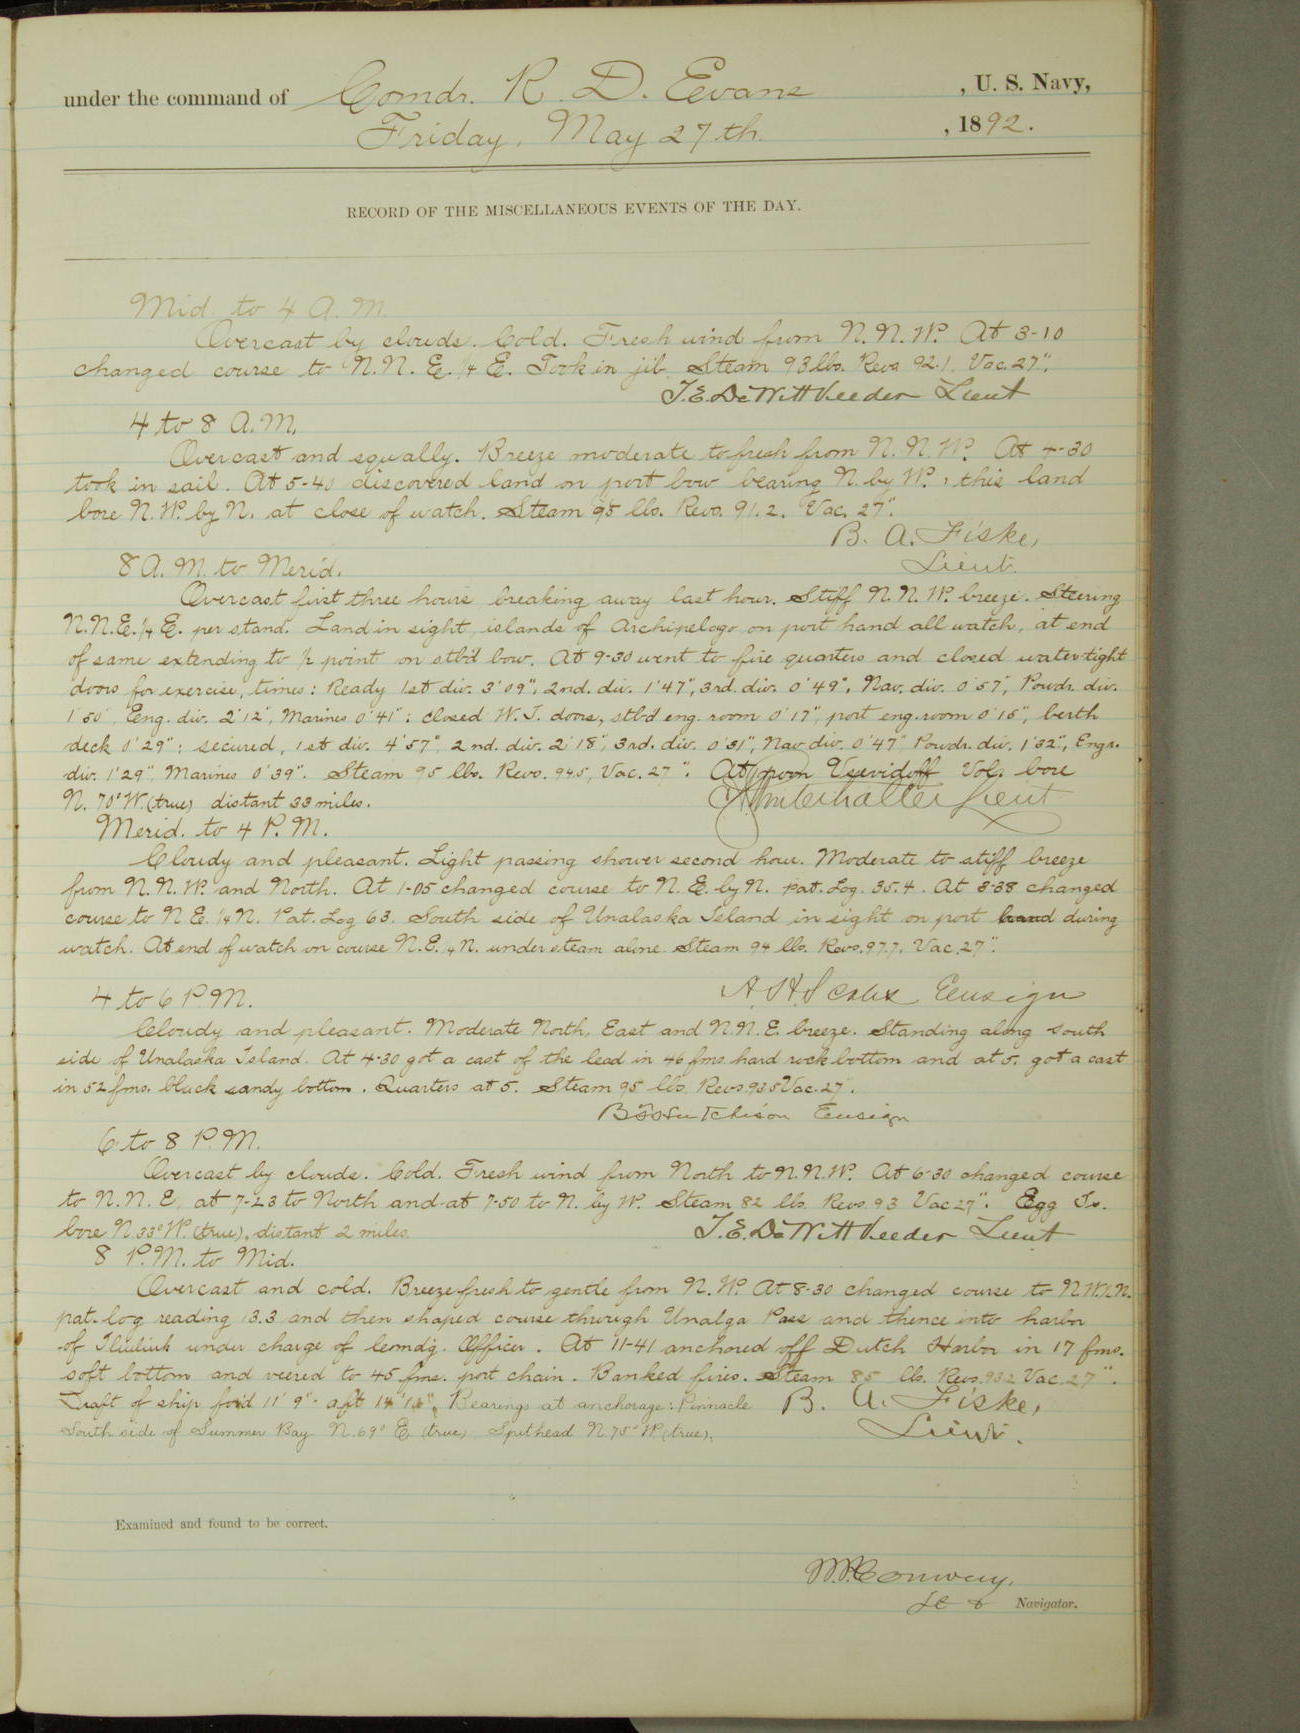 under the command of Comdr. R. D. Evans, U. S. Navy,
Friday, May 27th., 1892.
RECORD OF THE MISCELLANEOUS EVENTS OF THE DAY.
Mid. to 4 A. M.
Overcast by clouds. Cold. Fresh wind from N. N. W. At 3-10
changed course to N. N. E. 1/4 E. Took in jib. Steam 93 lbs. Revs. 92.1. Vac. 27".
T. E. DeWitt Veeder Lieut
4 to 8 A. M.
Overcast and squally. Breeze moderate to fresh from N. N. W. At 4-30
took in sail. At 5-40 discovered land on port bow bearing N. by W., this land
bore N. W. by N. at close of watch. Steam 95 lbs. Revs. 91.2. Vac. 27".
B. A. Fiske,
Lieut.
8 A. M. to Merid.
Overcast first three hours breaking away last hour. Stiff N. N. W. breeze. Steering
N. N. E. 1/4 E. per stand. Land in sight, islands of Archipelago on port hand all watch, at end
of same extending to 1/2 point on stb'd bow. At 9-30 went to fire quarters and closed water-tight
doors for exercise, times: Ready 1st div. 3'09", 2nd. div. 1'47", 3rd. div. 0'49", Nav. div. 0'57", Powdr. div.
1'50", Eng. div. 2'12", Marines 0'41"; closed W. T. doors, stb'd eng. room 0'17", port eng. room 0'15", berth
deck 0'29"; secured, 1st div. 4'57", 2nd. div. 2'18", 3rd. div. 0'31", Nav. div. 0'47", Powdr. div. 1'32", Engr.
div. 1'29", Marines 0'39". Steam 95 lbs. Revs. 94.5, Vac. 27". At noon Vsevidoff Vol. bore
N. 70° W. (true) distant 33 miles.
Winterhalter Lieut
Merid. to 4 P. M.
Cloudy and pleasant. Light passing shower second hour. Moderate to stiff breeze
from N. N. W. and North. At 1-05 changed course to N. E. by N. Pat. Log. 35.4. At 3-38 changed
course to N. E. 1/4 N. Pat. Log 63. South side of Unalaska Island in sight on port hand during
watch. At end of watch on course N. E. 1/4 N. under steam alone. Steam 94 lbs. Revs. 97.7. Vac. 27".
A. H. Scales Ensign
4 to 6 P. M.
Cloudy and pleasant. Moderate North, East and N. N. E. breeze. Standing along south
side of Unalaska Island. At 4-30 got a cast of the lead in 46 fms. hard rock bottom and at 5. got a cast
in 52 fms. black sandy bottom. Quarters at 5. Steam 95 lbs. Revs. 93.5 Vac. 27".
B. F. Hutchison Ensign
6 to 8 P. M.
Overcast by clouds. Cold. Fresh wind from North to N. N. W. At 6-30 changed course
to N. N. E. at 7-23 to North and at 7-50 to N. by W. Steam 82 lbs. Revs. 93 Vac 27". Egg Is.
bore N. 33° W. (true), distant 2 miles.
T. E. DeWitt Veeder Lieut
8 P. M. to Mid.
Overcast and cold. Breeze fresh to gentle from N. W. At 8-30 changed course to N. W. 1/2 N.
pat. log reading 13.3 and then shaped course through Unalga Pass and thence into harbor
of Iliuliuk under charge of Comd'g. Officer. At 11-41 anchored off Dutch Harbor in 17 fms.
soft bottom and veered to 45 fms. port chain. Banked fires. Steam 85 lbs. Revs. 93.2 Vac. 27".
Draft of ship for'd 11' 9" - aft Bearings at anchorage: Pinnacle
South side of Summer Bay N. 69° E. (true) Spithead N. 75° W. (true).
B. A. Fiske,
Lieut.
Examined and found to be correct.
Conway,
Navigator.